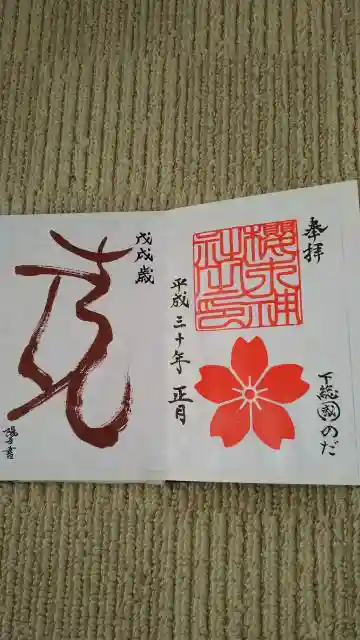 奉拝
櫻木神
社之印
下総國のだ
平成三十年 正月
戊戌歳